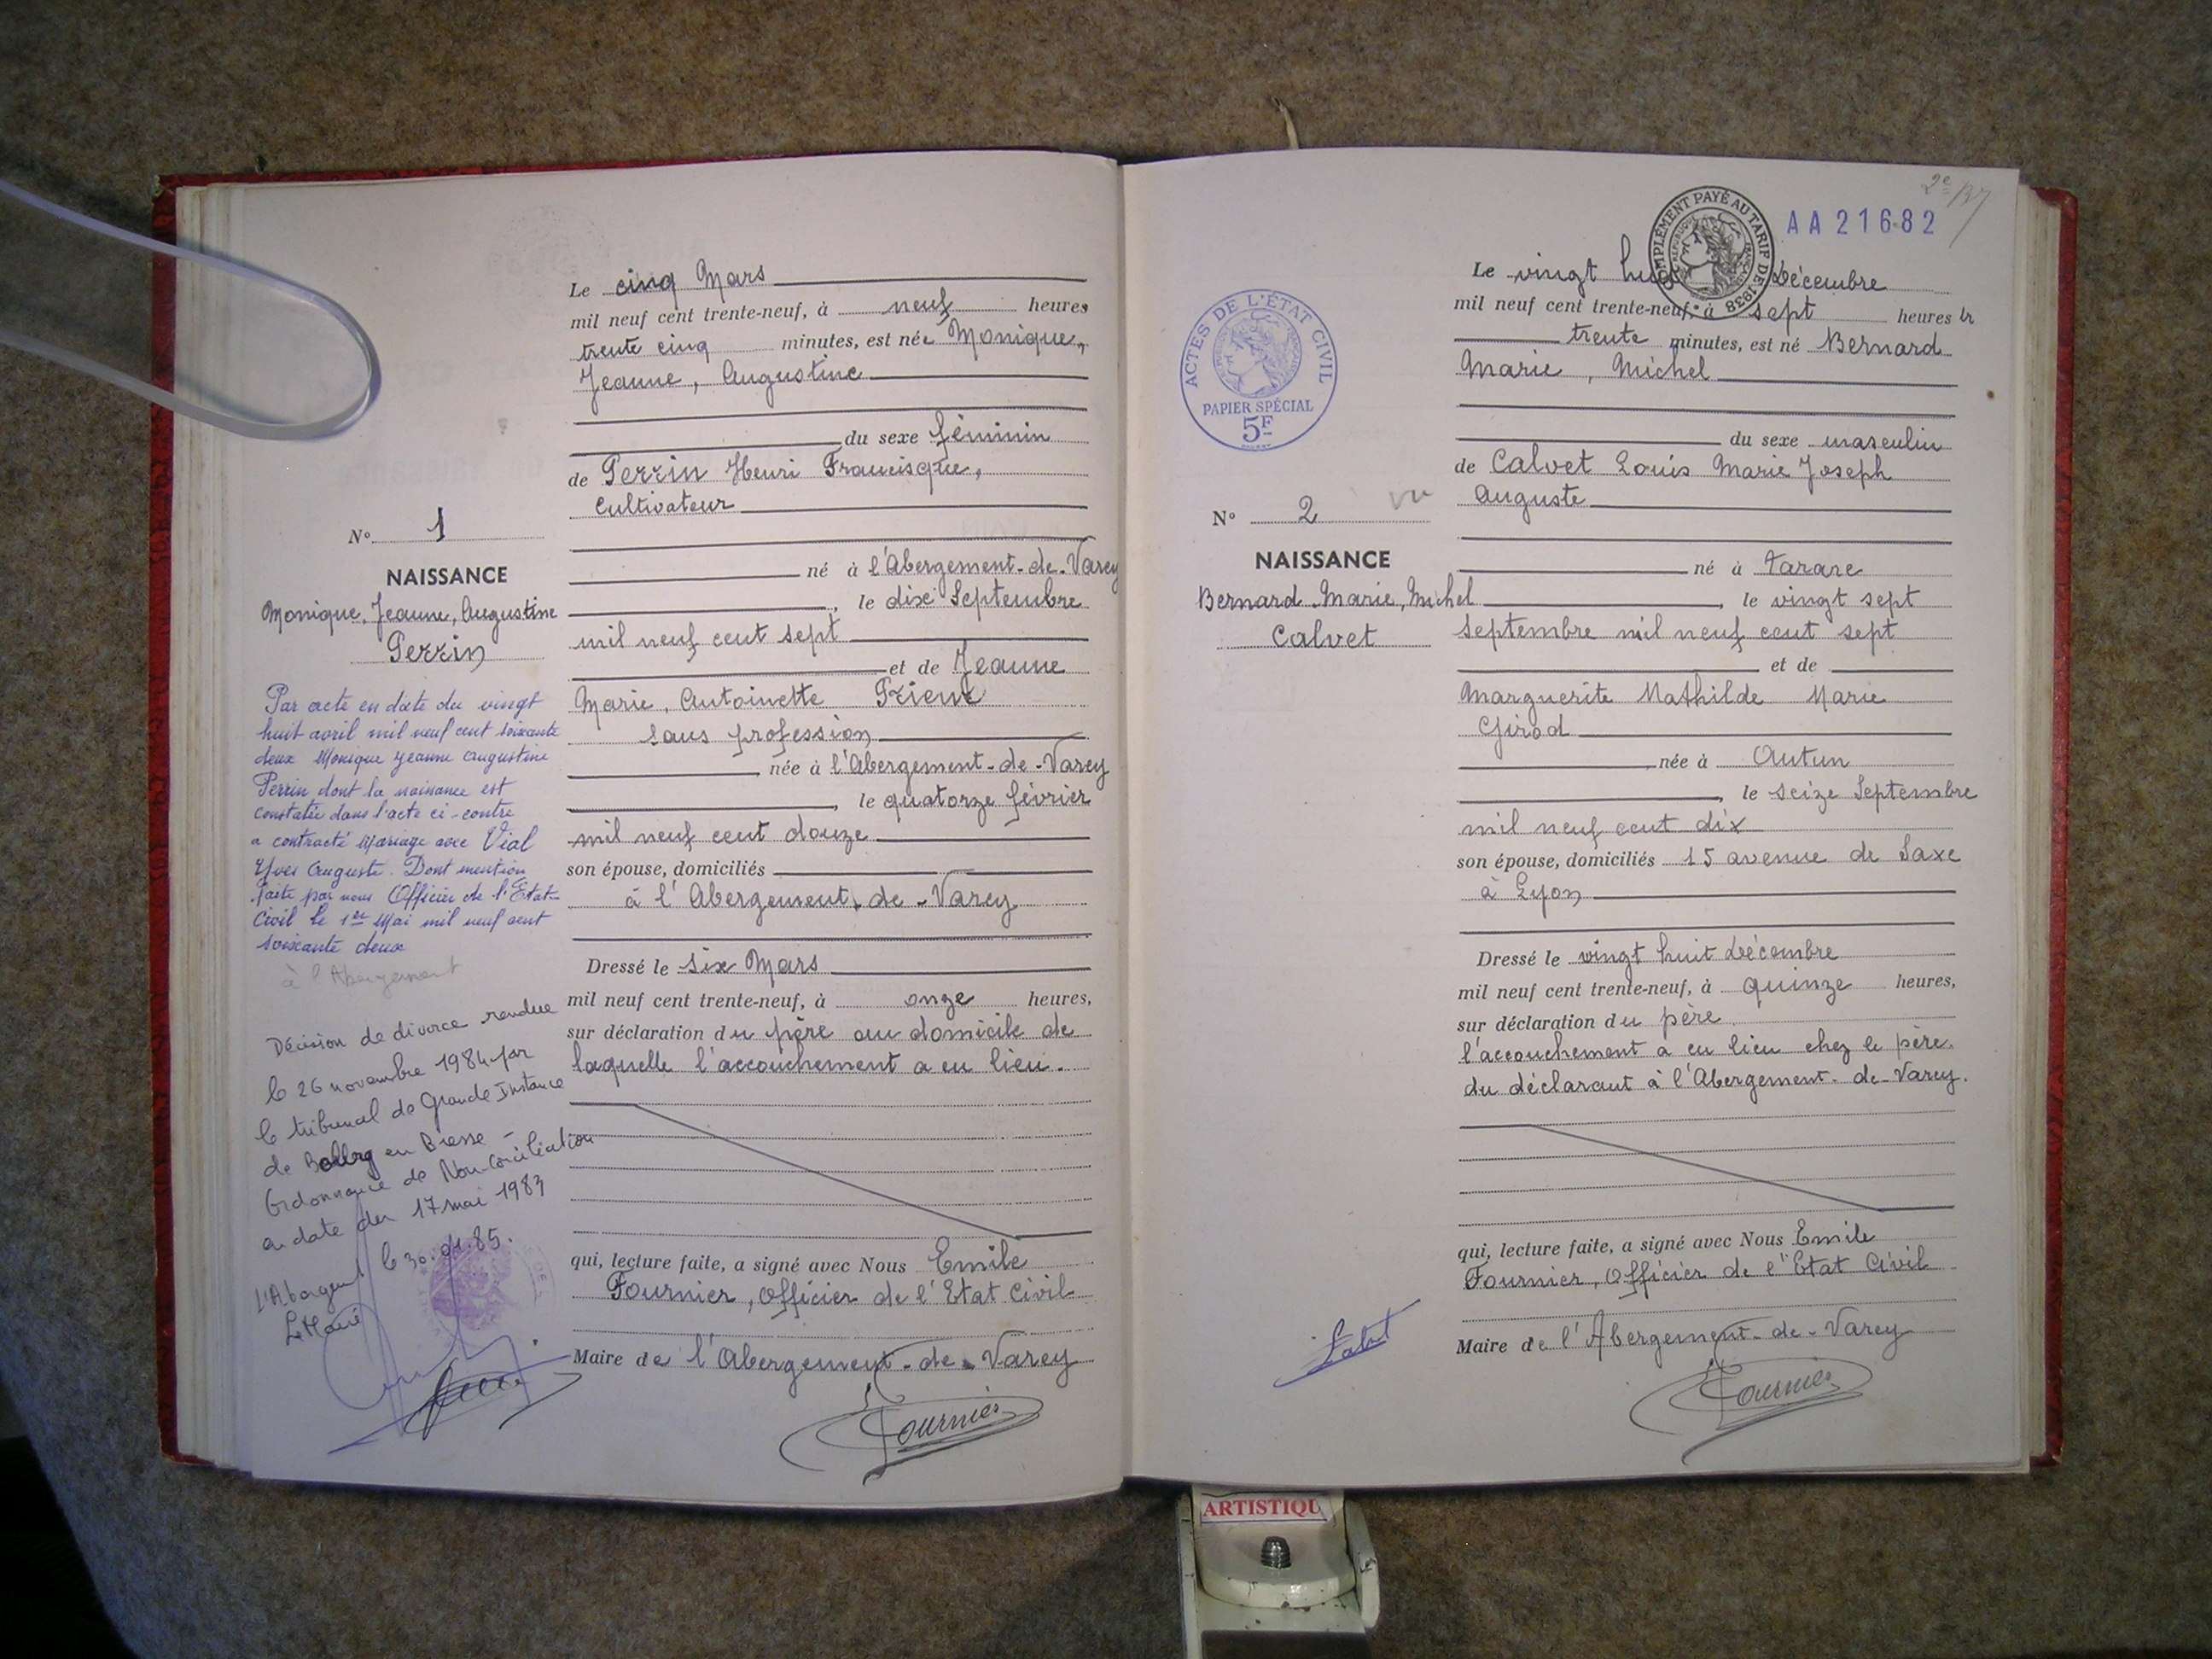 Le cinq Mars
mil neuf cent trente-neuf, à neuf heures
trente cinq minutes, est née Monique,
Jeanne, Augustine
du sexe féminin
de Perrin Henri Francisque,
cultivateur
N° 1
NAISSANCE
Monique, Jeanne, Augustine
Perrin
né à l'Abergement-de-Varey
, le dix Septembre
mil neuf cent sept
et de Jeanne
Marie, Antoinette
sans profession
née à l'Abergement-de-Varey
, le quatorze février
mil neuf cent douze
son épouse, domiciliés
à l'Abergement-de-Varey
Dressé le six Mars
mil neuf cent trente-neuf, à onze heures,
sur déclaration du père au domicile de
laquelle l'accouchement a eu lieu.
qui, lecture faite, a signé avec Nous Emile
Fournier, Officier de l'Etat Civil
Maire de l'Abergement-de-Varey
Fournier
Par acte en date du vingt
huit avril mil neuf cent soixante
deux Monique Jeanne Augustine
Perrin dont la naissance est
constatée dans l'acte ci-contre
a contracté Mariage avec Vial
Yves Auguste. Dont mention
faite par nous Officier de l'Etat-
Civil le 1er Mai mil neuf cent
soixante deux
à l'Abergement
Décision de divorce rendue
le 26 novembre 1984 par
le tribunal de Grande Instance
de Bourg en Bresse -
Ordonnance de Non-Conciliation
en date du 17 mai 1983
l'Abergement le 30.01.85.
Le Maire
2e
AA 21682
COMPLÉMENT PAYÉ AU TARIF DE 1938
ACTES DE L'ÉTAT CIVIL
PAPIER SPÉCIAL
5F
Le vingt huit décembre
mil neuf cent trente-neuf, à sept heures
trente minutes, est né Bernard
Marie, Michel
du sexe masculin
de Calvet Louis Marie Joseph
Auguste
N° 2 vu
NAISSANCE
Bernard, Marie, Michel
Calvet
né à Tarare
, le vingt sept
septembre mil neuf cent sept
et de
Marguerite Mathilde Marie
Girod
née à Autun
, le seize Septembre
mil neuf cent dix
son épouse, domiciliés 15 avenue de Saxe
à Lyon
Dressé le vingt huit décembre
mil neuf cent trente-neuf, à quinze heures,
sur déclaration du père
l'accouchement a eu lieu chez le père
du déclarant à l'Abergement-de-Varey.
qui, lecture faite, a signé avec Nous Emile
Fournier, Officier de l'Etat Civil
Maire de l'Abergement-de-Varey
Fournier
ARTISTIQU